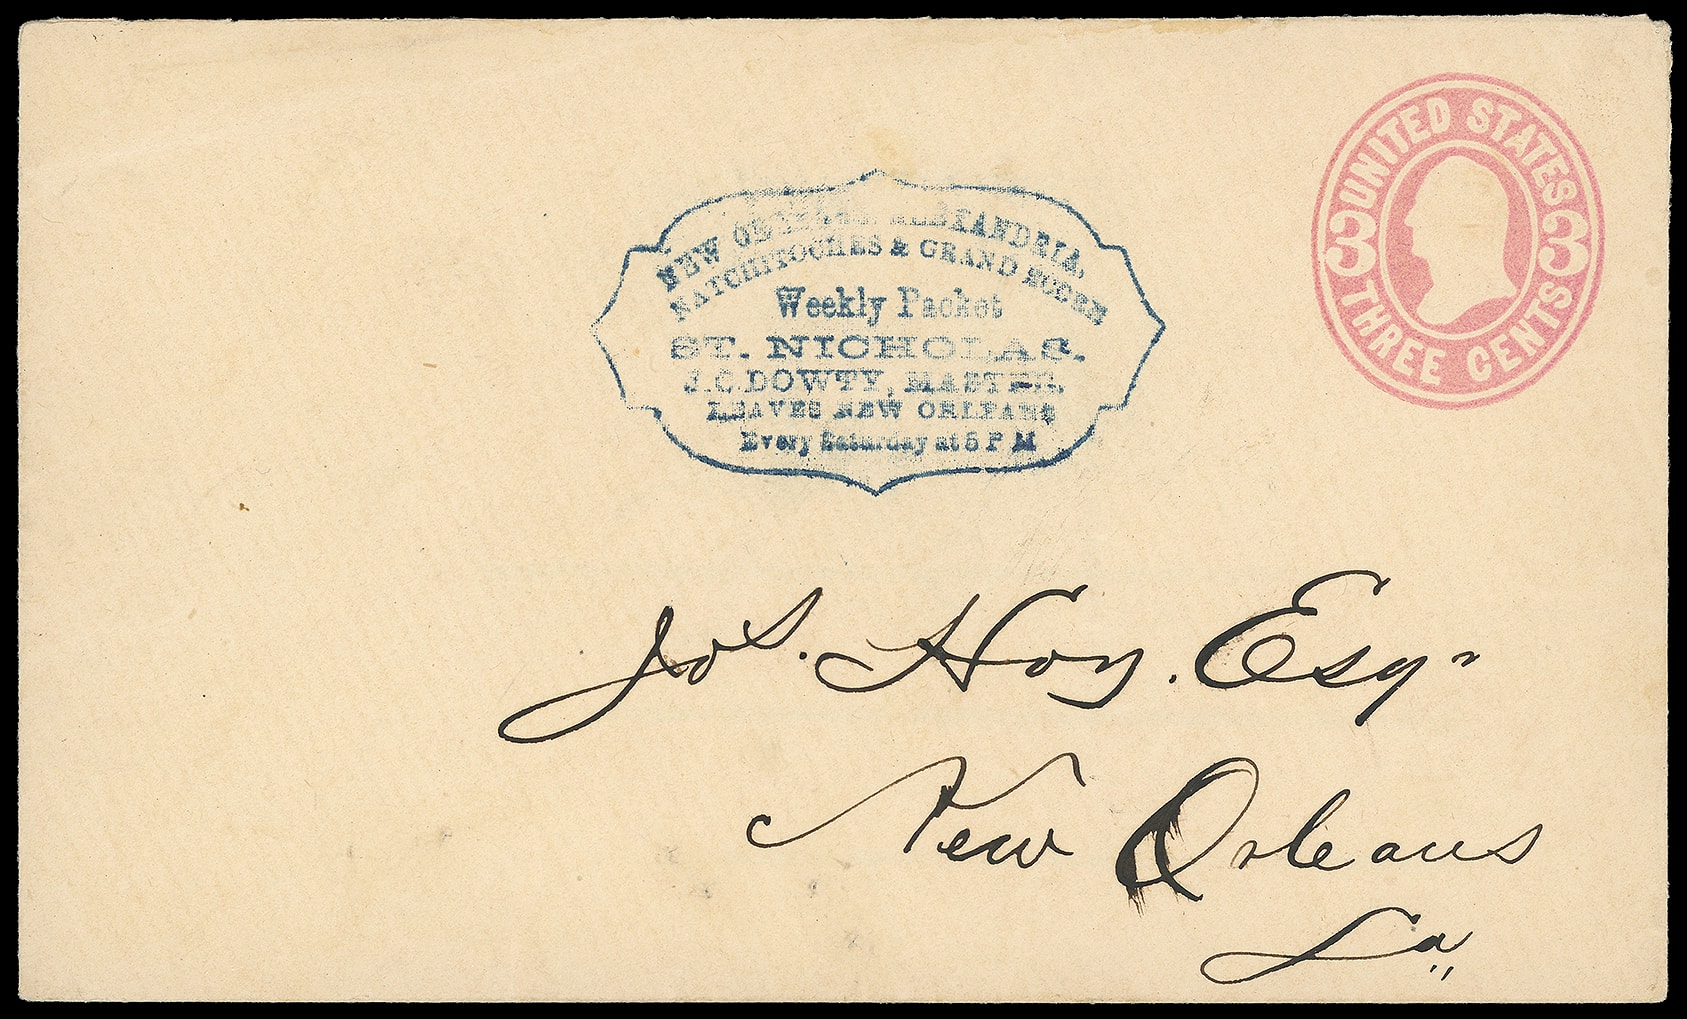 NEW ORLEANS, ALEXANDRIA,
NATCHITOCHES & GRAND ECORE
Weekly Packet
ST. NICHOLAS.
J. C. DOWTY, MASTER.
LEAVES NEW ORLEANS
Every Saturday at 5 P M
UNITED STATES
3 3
THREE CENTS
Jos. Hoy. Esqr
New Orleans
La